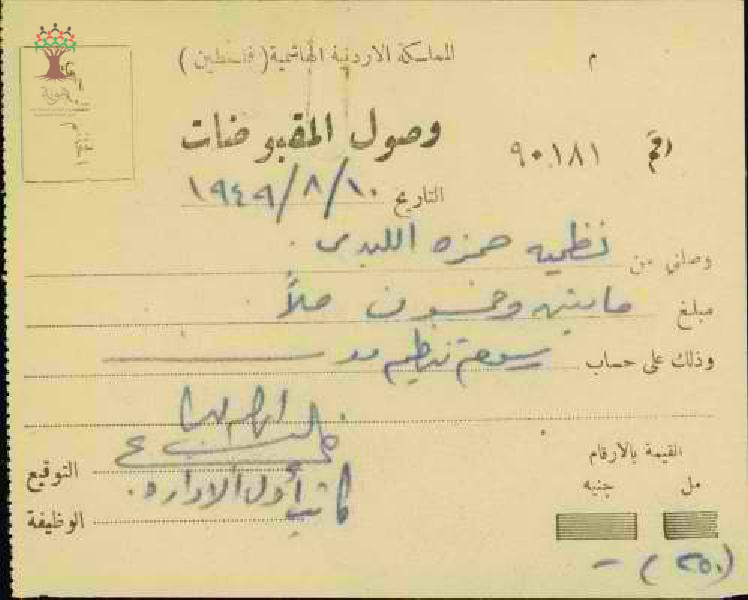 المملكة الاردنية الهاشمية (فلسطين)
م
وصول المقبوضات
رقم ٩٠١٨١
التاريخ ١٠/٨/١٩٤٩
وصلني من نظميه حمزه اللبدي
مبلغ مايتين وخمسون ملاً
وذلك على حساب رسوم تنظيم
القيمة بالأرقام
مل جنيه
(٢٥٠) -
التوقيع
الوظيفة كاتب أول الاداره